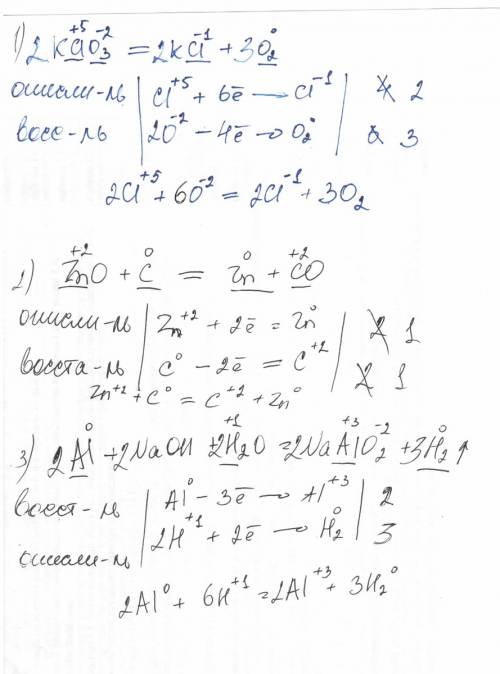 1) 2KCl⁺⁵O₃⁻² = 2KCl⁻¹ + 3O₂⁰
окисли-ль | Cl⁺⁵ + 6ē — Cl⁻¹ | 2
восс-ль | 2O⁻² – 4ē → O₂⁰ | 3
2Cl⁺⁵ + 6O⁻² = 2Cl⁻¹ + 3O₂
2) Zn⁺²O + C⁰ = Zn⁰ + C⁺²O
окисли-ль | Zn⁺² + 2ē = Zn⁰ | 2 1
восста-ль | C⁰ – 2ē = C⁺² | 2 1
Zn⁺² + C⁰ = C⁺² + Zn⁰
3) 2Al⁰ + 2NaOH + 2H₂⁺¹O = 2NaAl⁺³O₂⁻² + 3H₂⁰↑
восст-ль | Al⁰ – 3ē → Al⁺³ | 2
окисли-ль | 2H⁺¹ + 2ē → H₂⁰ | 3
2Al⁰ + 6H⁺¹ = 2Al⁺³ + 3H₂⁰